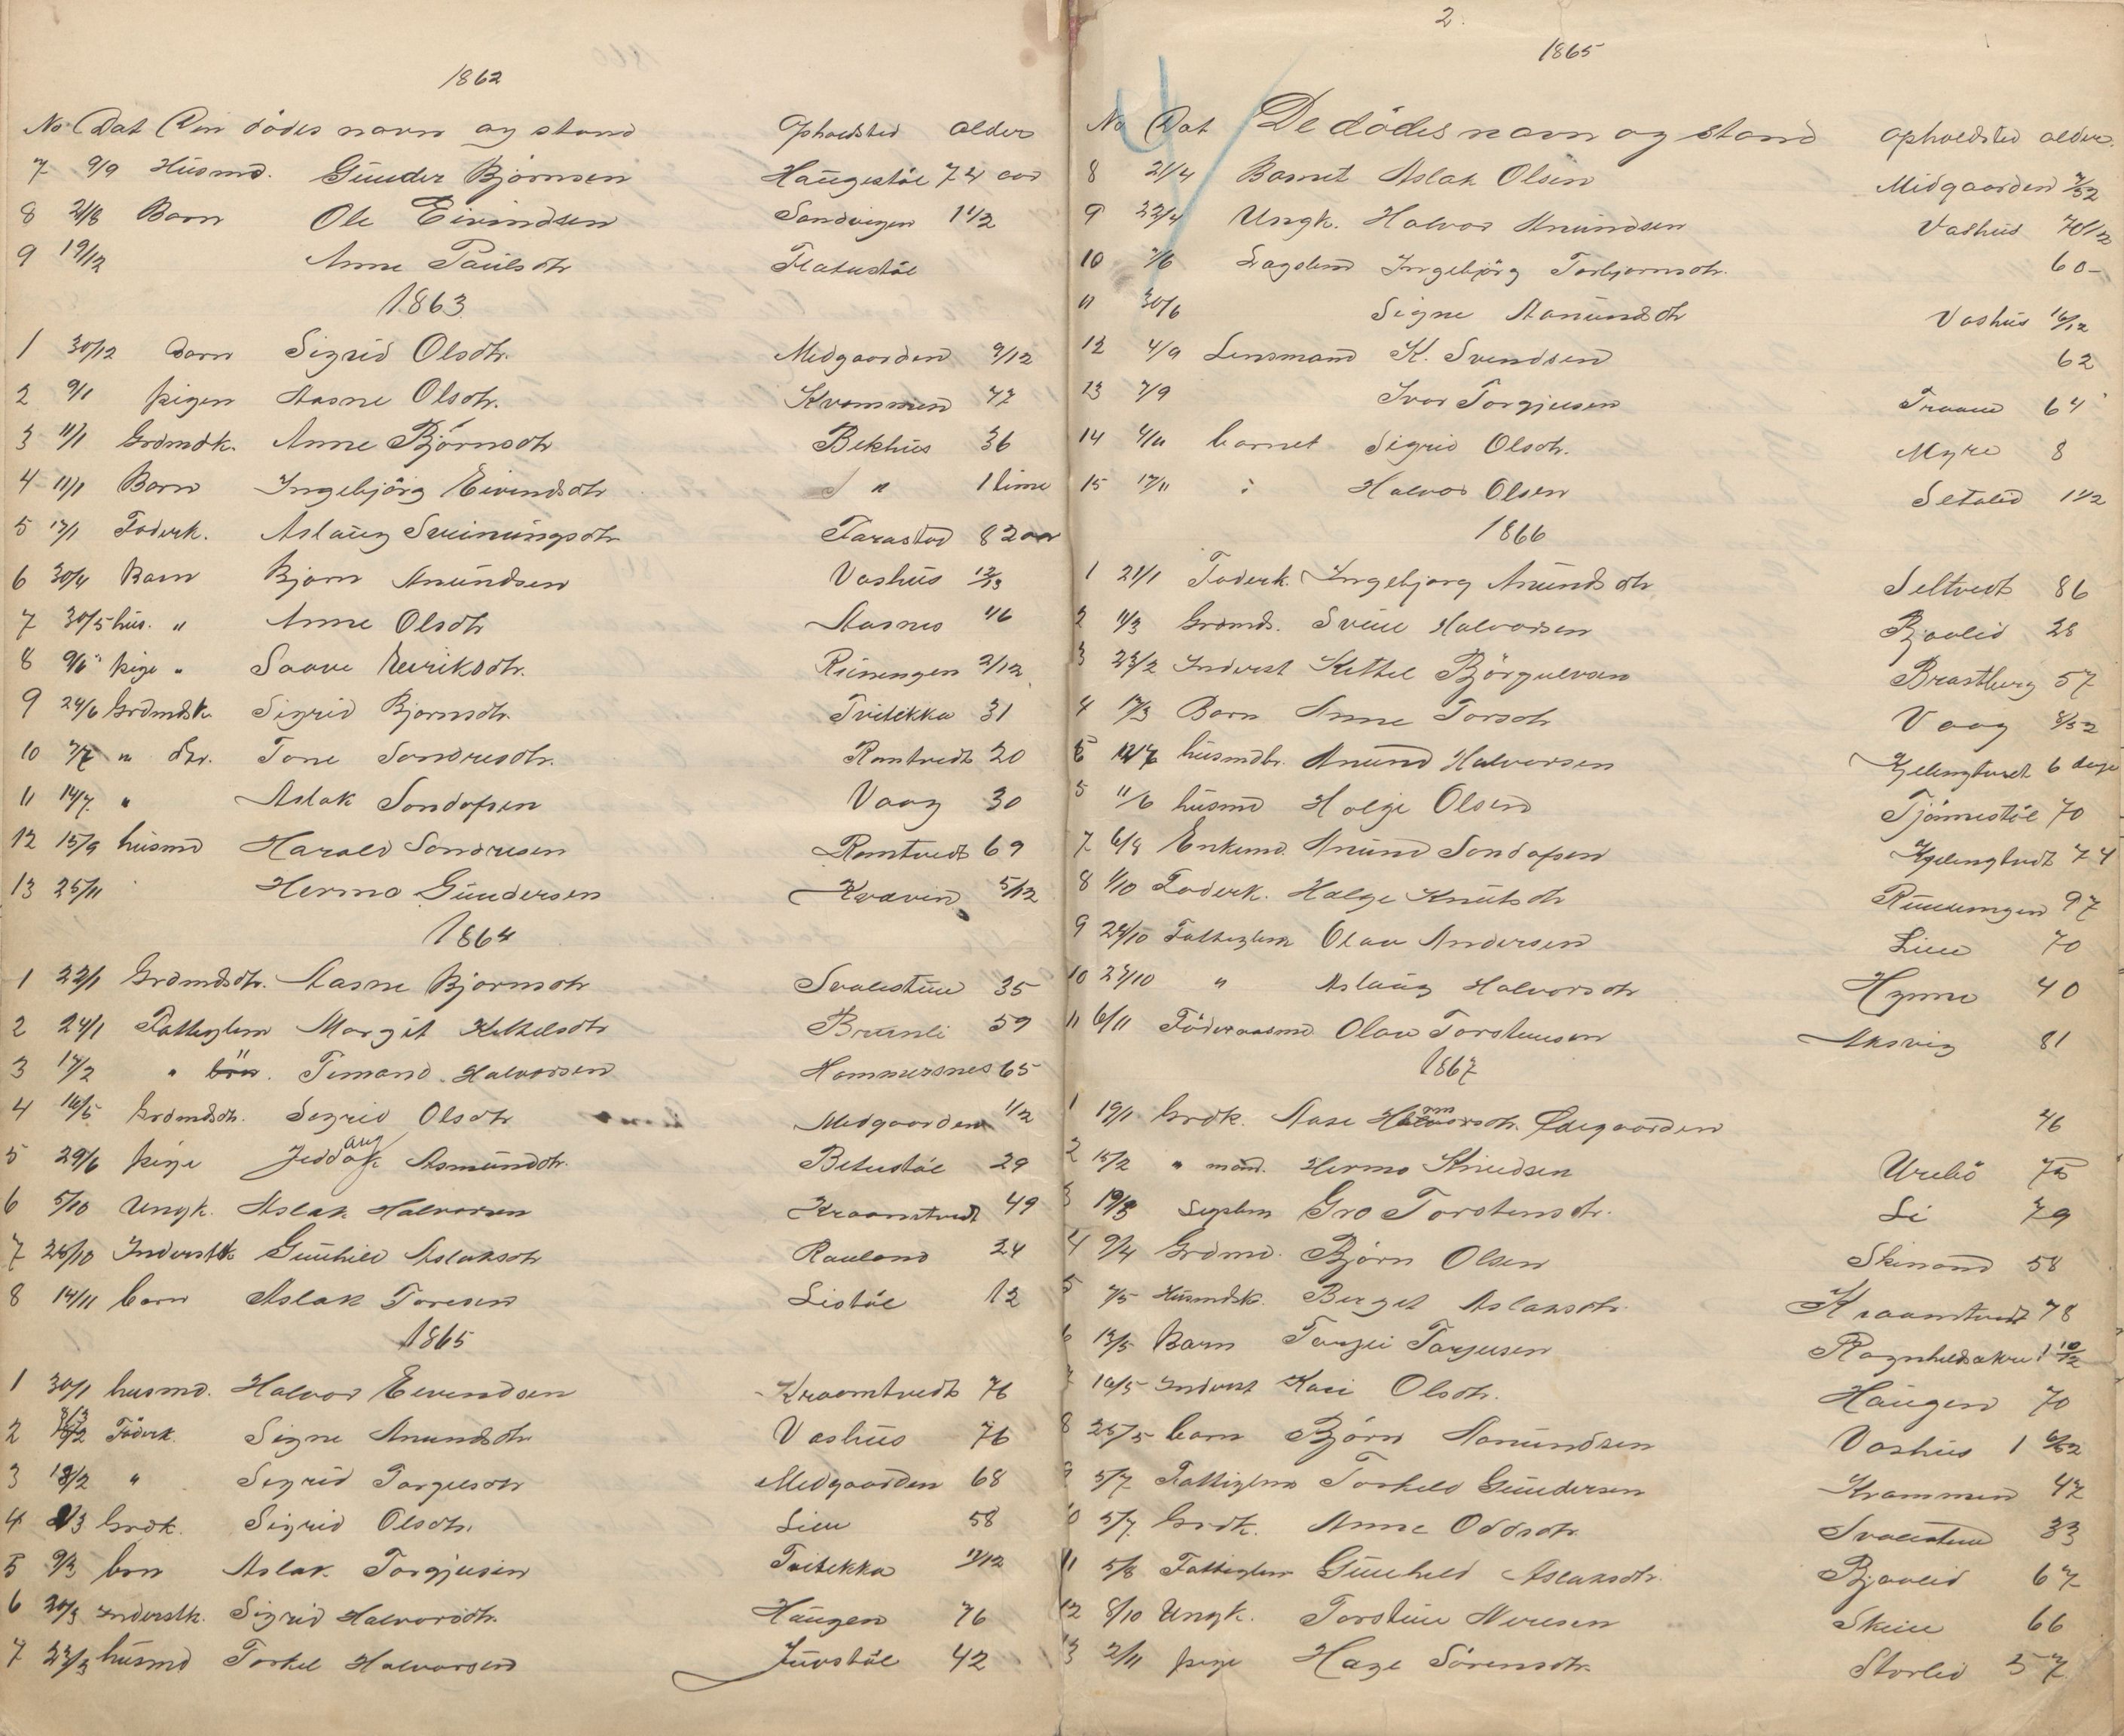 1862
No Dat Den dödes navn og stand Opholdsted alder
7 9/9 Husmd. Gunder Björnsen Haugestöl 74 aar
8 21/8 Barn Ole Eivindsen Sandvigen 1 1/2
9 19/12 Anne Paulsdtr Flatustöl
1863
1 30/12 Barn Sigrid Olsdtr. Midgaarden 9/12
2 9/1 pigen Aasne Olsdtr. Kvammen 77
3 11/1 Grdmdk. Anne Björnsdtr Bekhus 36
4 11/1 Barn Ingebjörg Eivindsdtr " 1 time
5 17/1 Foderk. Aslaug Sveinungsdtr Farastad 82 aar
6 30/4 Barn Bjorn Anundsen Vashus 12/13
7 30/5 hus. " Anne Olsdtr Aasnes 1/6
8 9/6 pige " Saave Eeriksdtr. Runingen 2/12
9 24/6 Grdmdsk. Sigrid Bjornsdtr. Tvitekka 31
10 7/7 " dtr. Tone Sondresdtr. Romtvedt 20
11 14/7 " Aslak Sondofsen Vaag 30
12 15/9 husmd Harald Sondresen Romtvedt 69
13 25/11 Hermo Gundersen Kvavin 5/12
1864
1 22/1 Grdmdsdtr. Aasne Bjornsdtr Svalestuu 35
2 24/1 Fattiglem Margit Kittelsdtr Brunli 59
3 17/2 " Temand Halvorsen Hammersnes 65
4 16/5 Grdmdsdtr. Sigrid Olsdtr Midgaarden 1/2
5 29/6 pige Jeddak aug Asmundsdtr. Bitustöl 29
6 5/10 Ungk. Aslak Halvorsen Kraamtvedt 49
7 25/10 Inderstk Gunhild Aslaksdtr Rauland 24
8 14/11 barn Aslak Toresen Listöl 12
1865
1 30/1 husmd. Halvor Eivendsen Kraamtvedt 76
2 Föderk. Signe Anundsdtr Vashus 76
3 18/2 " Sigrid Torgusdtr Midgaarden 68
4 2/3 Grdk. Sigrid Olsdtr. Lien 58
5 9/3 brn Aslak Torgjusen Tvitekka 11/12
6 20/3 Inderstk. Sigrid Halvorsdtr. Haugen 76
7 23/3 husmd Torkel Halvorsen Juvstöl 42
2.
1865
No Dat De dödes navn og stand opholdsted alder.
8 21/4 Barnet Aslak Olsen Midgaarden 7/52
9 22/4 Ungk. Halvor Anundsen Vashus
10 7/6 Lagdem Ingebjörg Torbjornsdtr. 60-
11 30/6 Signe Aanundsdtr Vashus 16/12
12 4/9 Lensmand K. Svendsen 62
13 7/9 Ivar Torgjusen Traaen 64
14 4/10 barnet Sigrid Olsdtr. Myre 8
15 17/11 " Halvor Olsen Setalid 1 1/2
1866
1 21/1 Foderk. Ingebjorg Anundsdtr Seltvedt 86
2 11/3 Grdmds. Svein Halvorsen Bjaalid 28
3 23/2 Inderst Kittel Björgulvsen Brastberg 57
4 17/3 Barn Anne Torsdtr Vaag 8/52
husmdbr. Anund Halvorsen Kjelingtvedt 6 dage
5 11/6 husmd Holje Olsen Tjönnestöl 70
7 6/8 Enkemd. Anund Sondofsen Kjelingtvedt 74
8 1/10 Foderk. Halge Knutsdtr Ruuningen 97
9 24/10 Fattiglem Olav Andersen Lien 70
10 27/10 " Aslaug Halvorsdtr Hynne 40
11 6/11 Föderaadsmd Olav Torsteinsen Aksvig 81
1867
1 19/1 Grdk. Aase Halvorsdtr. Ödegaarden 46
2 15/2 " mand. Hermo Knudsen Urebö 75
3 19/3 Legdlem Gro Torstensdtr. Li 79
4 9/4 Grdmd. Björn Olsen Skinand 58
5 7/5 Husmdsk. Berget Aslaksdtr. Kraamtvedt 78
6 13/5 Barn Torgei Torjusen Ragnhildsakre 1 10/12
7 16/5 Inderst Kari Olsdtr. Haugen 70
8 25/5 barn Björn Aanundsen Vashus 1 6/52
9 5/7 Fattiglem Torkeld Gundersen Kvammen 47
10 5/7 Grdk. Anne Oddsdtr. Svalestuu 33
11 5/8 Fattiglem Gunhild Aslaksdtr. Bjaalid 67
12 8/10 Ungk. Torstein Neresen Skeie 66
13 2/11 pige Hage Sörensdtr. Storlid 57